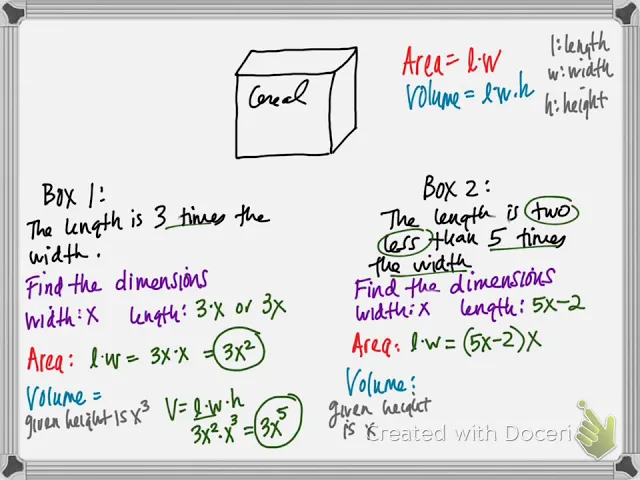 Cereal
Area = l·w
Volume = l·w·h
l: length
w: width
h: height
Box 1:
The length is 3 times the
width.
Find the dimensions
width: x length: 3·x or 3x
Area: l·w = 3x·x = 3x²
Volume =
given height is x³
V = l·w·h
3x²·x³ = 3x⁵
Box 2:
The length is two
less than 5 times
the width
Find the dimensions
width: x length: 5x-2
Area: l·w = (5x-2)x
Volume:
given height
is x
Created with Doceri